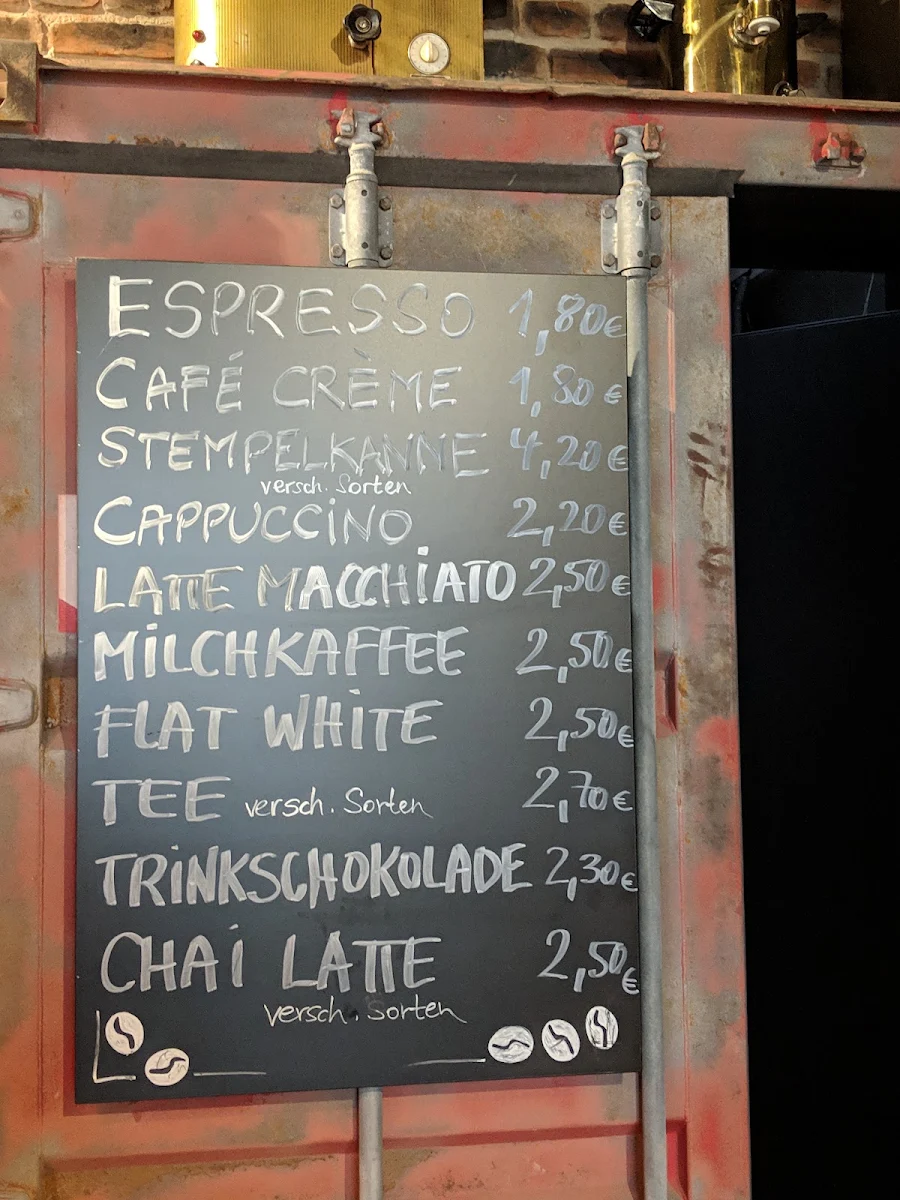 ESPRESSO 1,80€
CAFÉ CRÈME 1,80€
STEMPELKANNE 4,20€
versch. Sorten
CAPPUCCINO 2,20€
LATTE MACCHIATO 2,50€
MILCHKAFFEE 2,50€
FLAT WHITE 2,50€
TEE versch. Sorten 2,70€
TRINKSCHOKOLADE 2,30€
CHAI LATTE 2,50€
versch. Sorten